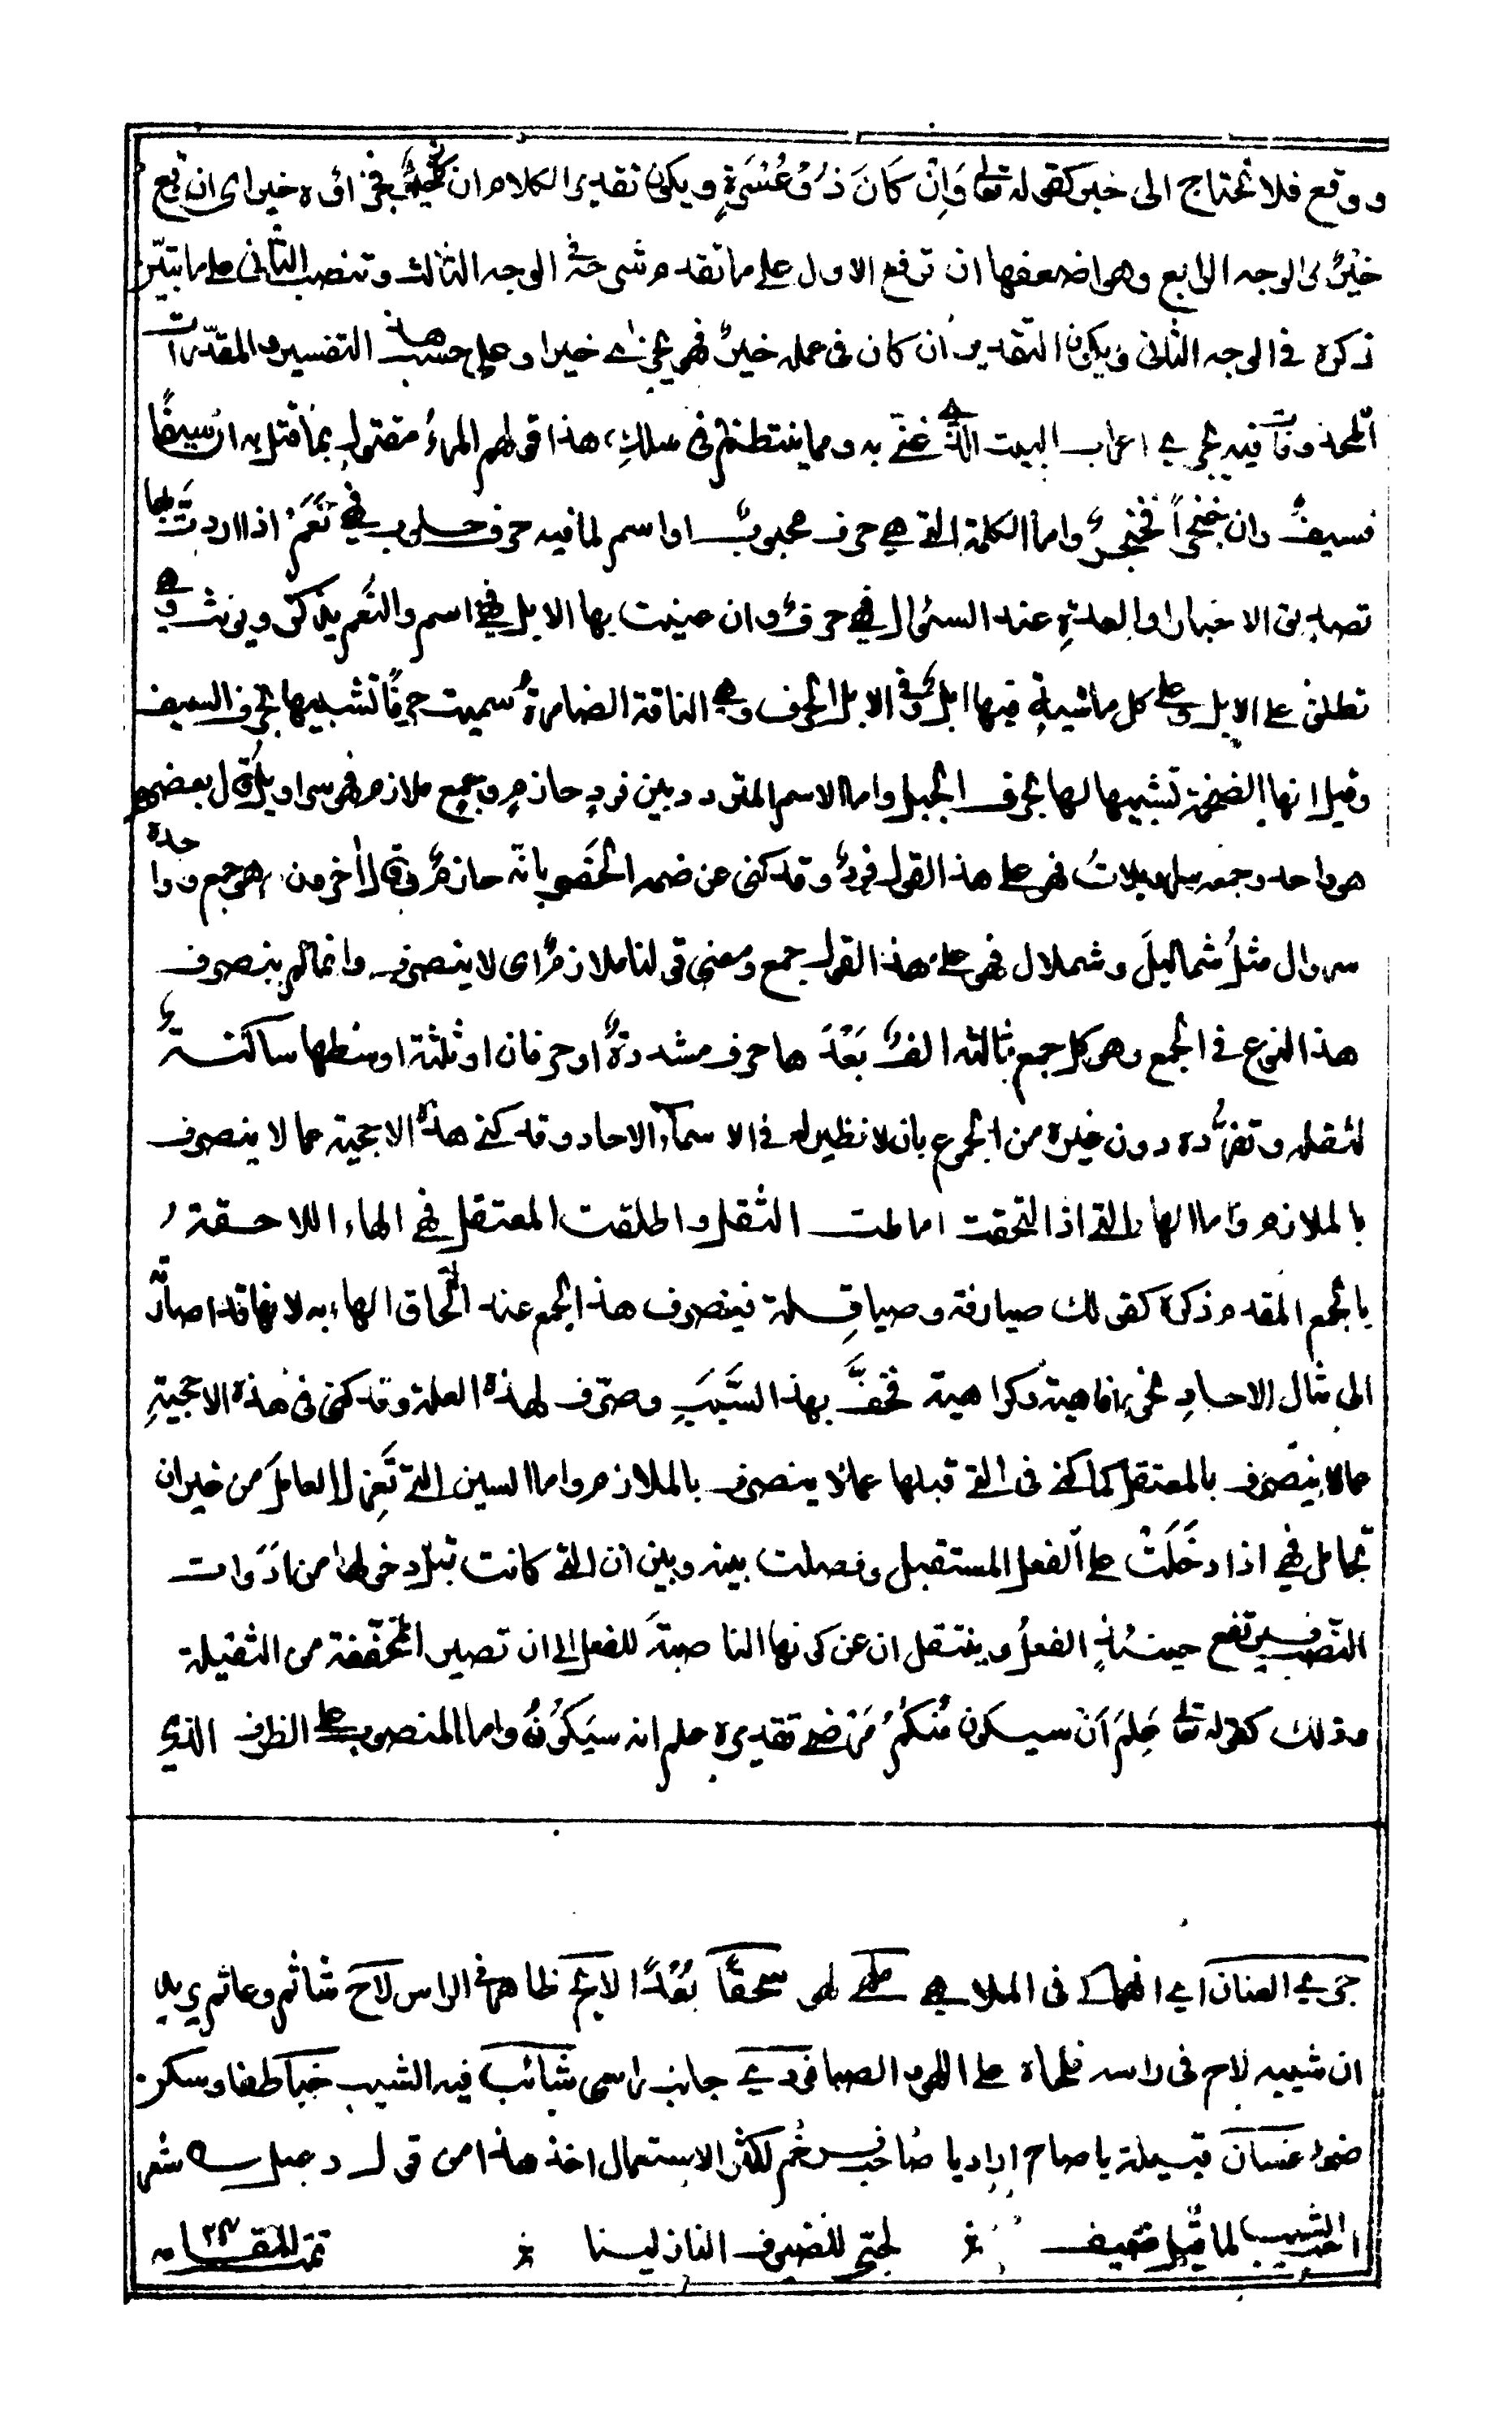 ووقع فلا تحتاج الى خبر كقوله تعا وَاِنْ كَانَ ذُوْ عُسْرَةٍ ويكون تقدير الكلام ان فجزاؤه خير اى ان وقع
خيرٌ الوجه الرابع وهو اضعفها ان ترفع الاول على ما تقدم شرحه فى الوجه الثالث وتنصب الثانى على ما تبيّن
ذكره فى الوجه الثانى ويكون التقدير ان كان فى عمله خيرٌ فهو يجزى خيرا وعلى حسب هذا التفسير والمقدّرات
المحذوفات فيه يجرى اعراب البيت الذى غنّى به ومما ينتظم فى سلك هذا قولهم المرءُ مقتول بما قتل به ان سيفًا
فسيفٌ وان خنجراً فخنجرٌ واما الكلمة التى هى حرف محبوبٌ او اسم لما فيه حرف حلوب فهى نَعَمْ اذا اردتَ بها
تصديق الاخبار او العدةِ عند السئوال فهى حرفٌ وان عنيت بها الابل فهى اسم والنَّعم يذكر ويونث وهى
تطلق على الابل وعلى كل ماشيةٍ فيها ابلٌ وفى الابل الحرف وهى الناقة الضامرةُ سميت حرفًا تشبيها بحرف السيف
وقيل انها الضخمة تشبيها لها بحرف الجبل واما الاسم المتردد بين فردٍ حازمٍ وجمع ملازم فهو سراويل قال بعضهم
هو واحد وجمعه سراويلاتُ فهو على هذا القول فردٌ وقد كنى عن ضمه الخَصْر بانّه حازمٌ وقال اٰخرون هو جمع وواحده
سروال مثلُ شماليلَ وشملال فهو على هذا القول جمع ومعنى قولنا ملازمٌ اى لا ينصرف وانما لم ينصرف
هذا النوع فى الجمع وهو كل جمع ثالثه الفٌ بَعْدَها حرف مشددةٌ او حرفان او ثلثة اوسطها ساكنةٌ
لثقله وتفرُّده دون غيره من الجموع بان لا نظير له فى الاسماء الاحاد وقد كنى هذه الاحجية عما لا ينصرف
بالملازم واما الهاء التى اذا التحقت اماطت الثقل واطلقت المعتقل فهى الهاء اللاحقة
بالجمع المقدم ذكره كقولك صيارفة وصياقلة فينصرف هذا الجمع عند الحاق الهاء به لانها قد اصارَتْه
الى مثال الاحادِ نحو رفاهية وكراهية فخفَّ بهذا السَّبَبِ وصرّف لهذه العلة وقد كنى فى هذه الاحجيةِ
عما لا ينصرف بالمعتقل كما كنى فى التى قبلها عما لا ينصرف بالملازم واما السين التى تَعزل العاملَ من غير ان
تجامل فهى اذا دَخَلَتْ على الفعل المستقبل وفصلت بينه وبين ان التى كانت قبل دخولها من اَدَوات
النصب فيرتفع حينئذٍ الفعلُ وينتقل ان عن كونها الناصبةَ للفعل الى ان تصير المخفّفة من الثقيلة
وذلك كقوله تعا عَلِمَ اَنْ سيكون مِنْكُمْ مَرْضٰى تقديره علم انه سَيَكُوْنُ واما المنصوب على الظرف الذى
جرى العنان اى انهماكى فى الملاهى طلقى لهوى سحقًا بُعْدًا لا يح ظاهر فى الراس لاح شاتم وعاتم يريد
ان شيبه لاح فى راسه فلماه على اللهو الصبا فودى جانب راسى شائب فيه الشيب خبا طفا وسكر
ضوء غسان قبيلة ياصاح اراد يا صاحب فرخم لكثرة الاستعمال اخذ هذا من قول دعبل ے شعر
احب الشيب لما قيل ضيف ؞ لحبى للضيوف النازلينا ؞ تمت المقامة ۲۴